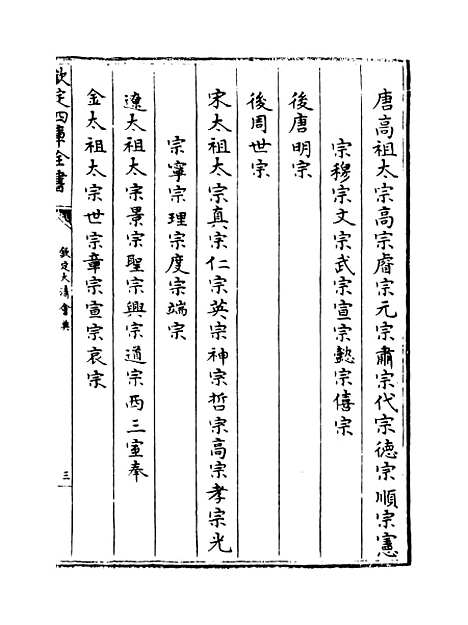 唐高祖太宗高宗睿宗元宗肅宗代宗德宗順宗憲
宗穆宗文宗武宗宣宗懿宗僖宗
後唐明宗
後周世宗
宋太祖太宗真宗仁宗英宗神宗哲宗高宗孝宗光
宗寧宗理宗度宗端宗
遼太祖太宗景宗聖宗興宗道宗西三室奉
金太祖太宗世宗章宗宣宗哀宗
欽定四庫全書
欽定大清會典
三